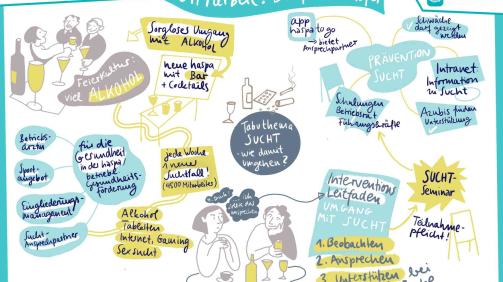 Sorgloser Umgang
mit Alkohol
neue haspa
mit Bar
+ Cocktails
Feierkultur:
viel ALKOHOL
app
haspa to go
→ bietet
Ansprechpartner
PRÄVENTION
SUCHT
Schwäche
darf gezeigt
werden
Intranet
Information
zu Sucht
Azubis finden
Unterstützung
Schulungen
Betriebsrat
Führungskräfte
Betriebs-
ärztin
Sport-
angebot
Eingliederungs-
management
Sucht-
Ansprechpartner
für die
Gesundheit
in der haspa/
betriebl.
Gesundheits-
förderung
jede Woche
1 neuer
Suchtfall!
(4500 Mitarbeiter)
Alkohol
Tabletten
Internet, Gaming
Sexsucht
Tabuthema
SUCHT
- wie damit
umgehen?
Interventions
Leitfaden
UMGANG
MIT SUCHT
1. Beobachten
2. Ansprechen
3. Unterstützen bei
SUCHT-
Seminar
Teilnahme-
pflicht!